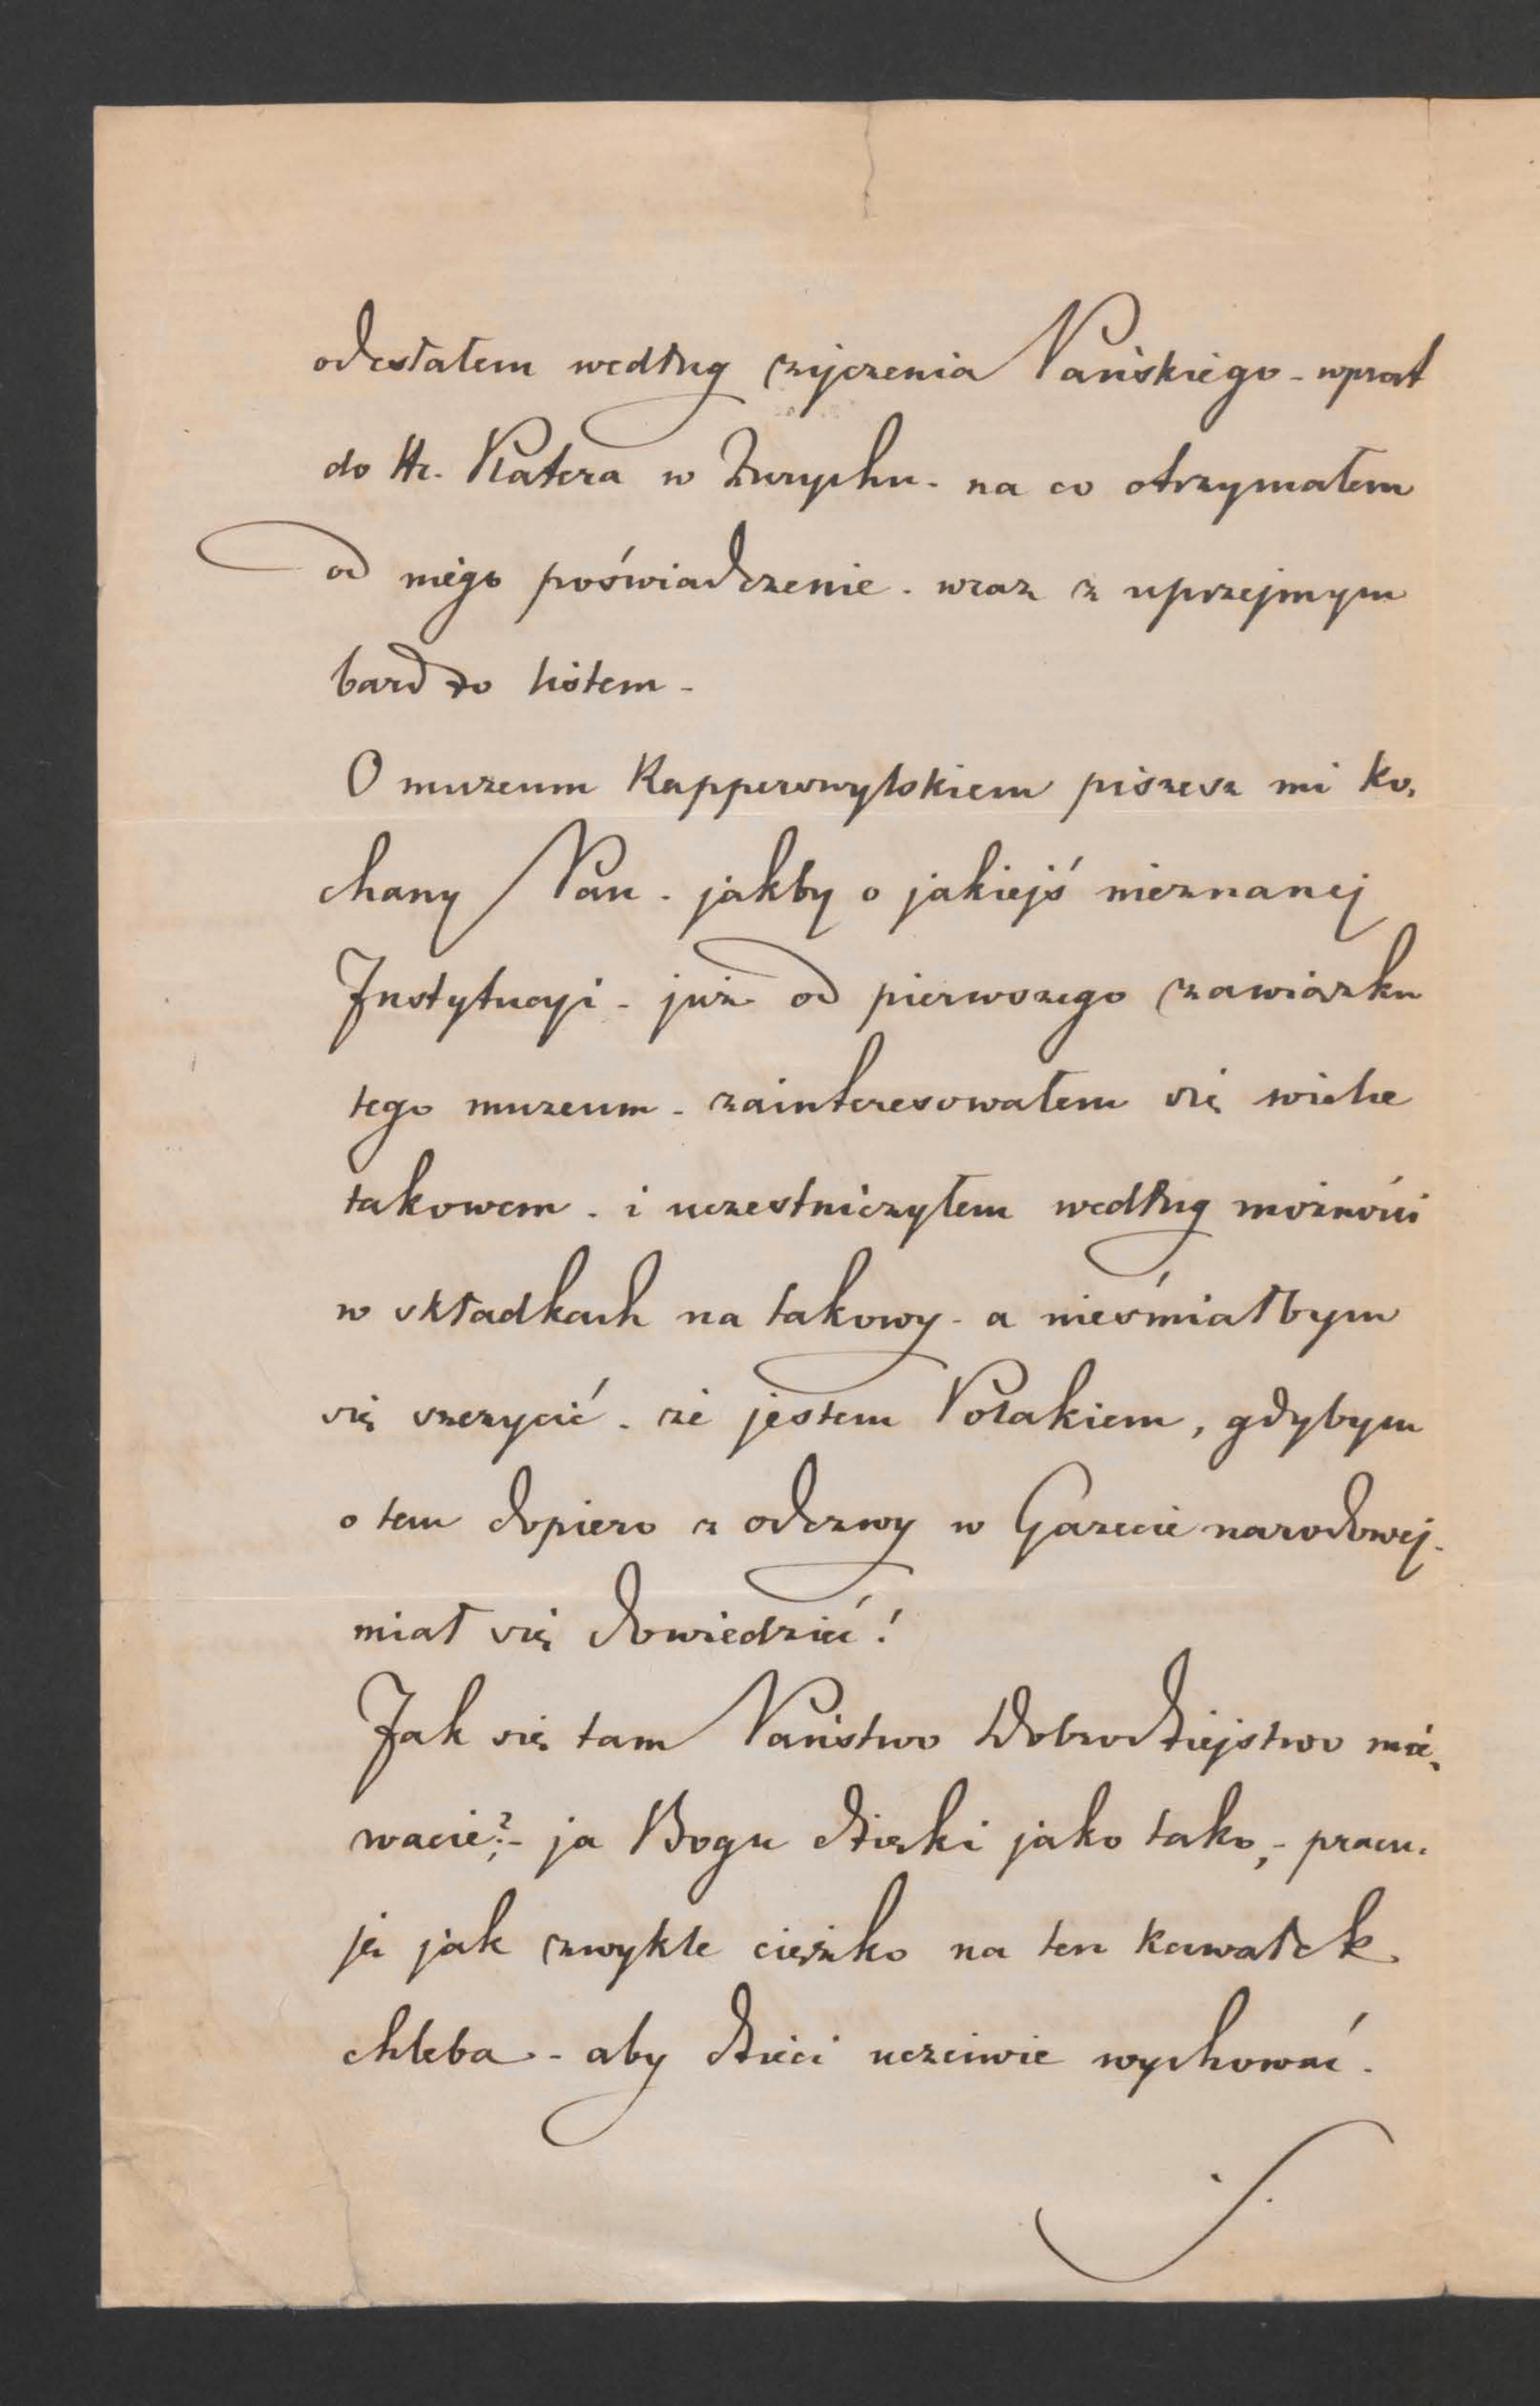 odesłałem według życzenia Pańskiego - wprost
do Hr. Platera w Zurychu - na co otrzymałem
od niego poświadczenie - wraz z uprzejmym
bardzo listem -
O muzeum Rapperswylskiem piszesz mi Ko-
chany Pan - jakby o jakiejś nieznanej
Instytucyi - już od pierwszego zawiązku
tego muzeum - zainteresowałem się wielce
takowem - i uczestniczyłem według możności
w składkach na takowy - a nieśmiałbym
się szczycić - że jestem Polakiem, gdybym
o tem dopiero z odezwy w Gazecie narodowej -
miał się dowiedzieć!
Jak się tam Państwo Dobrodziejstwo mie-
wacie? - ja Bogu dzięki jako tako, - pracu-
ję jak zwykle ciężko na ten kawałek
chleba - aby dzieci uczciwie wychować.